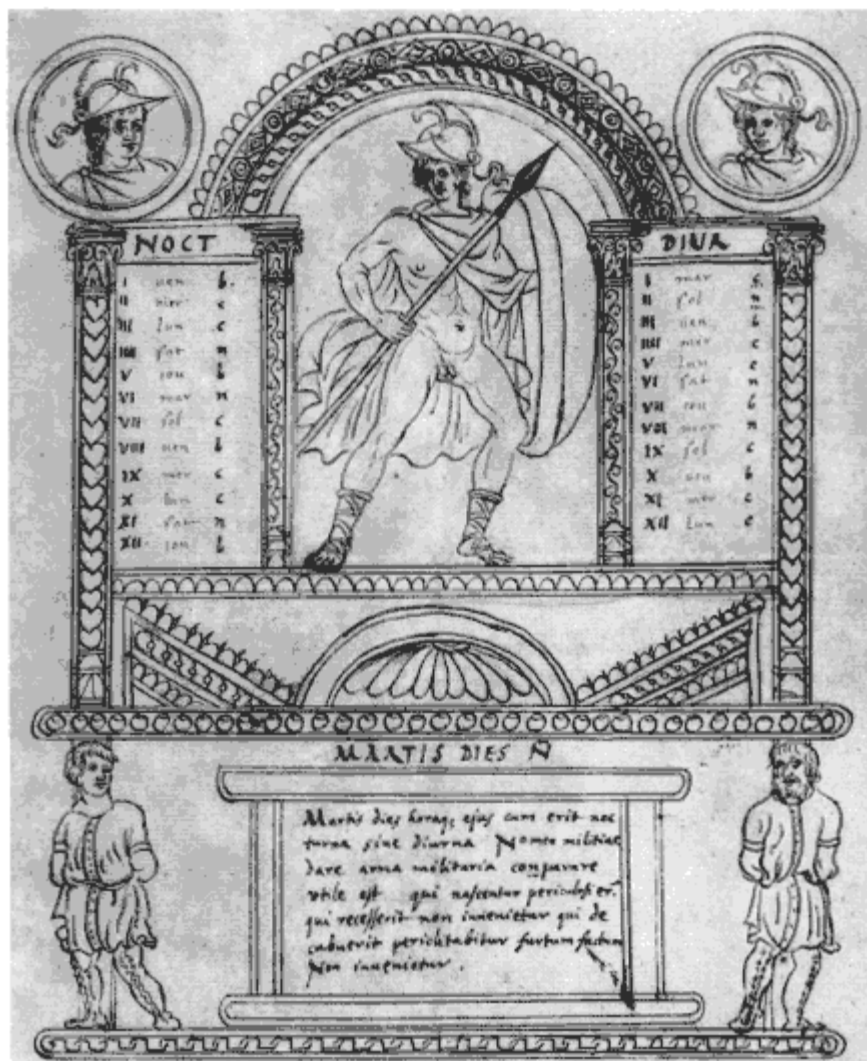 NOCT
I uen b.
II mer c
III lun c
IIII sat n
V iou b
VI mar n
VII sol c
VIII uen b
IX mer c
X lun c
XI sat n
XII iou b
DIUR
I mar
II sol
III uen b
IIII mer c
V lun c
VI sat n
VII iou b
VIII mar n
IX sol c
X uen b
XI mer c
XII lun c
MARTIS DIES N
Martis dies horaq; ejus cum erit noc
turna siue diurna Nomen militiae
dare arma militaria comparare
vtile est qui nascentur periculosi er.
qui recesserit non inuenietur qui de
cubuerit periclitabitur furtum factum
Non inuenietur.